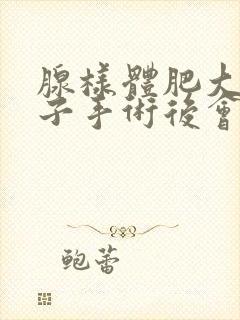 腺樣體肥大
子手術後會
鲍蕾